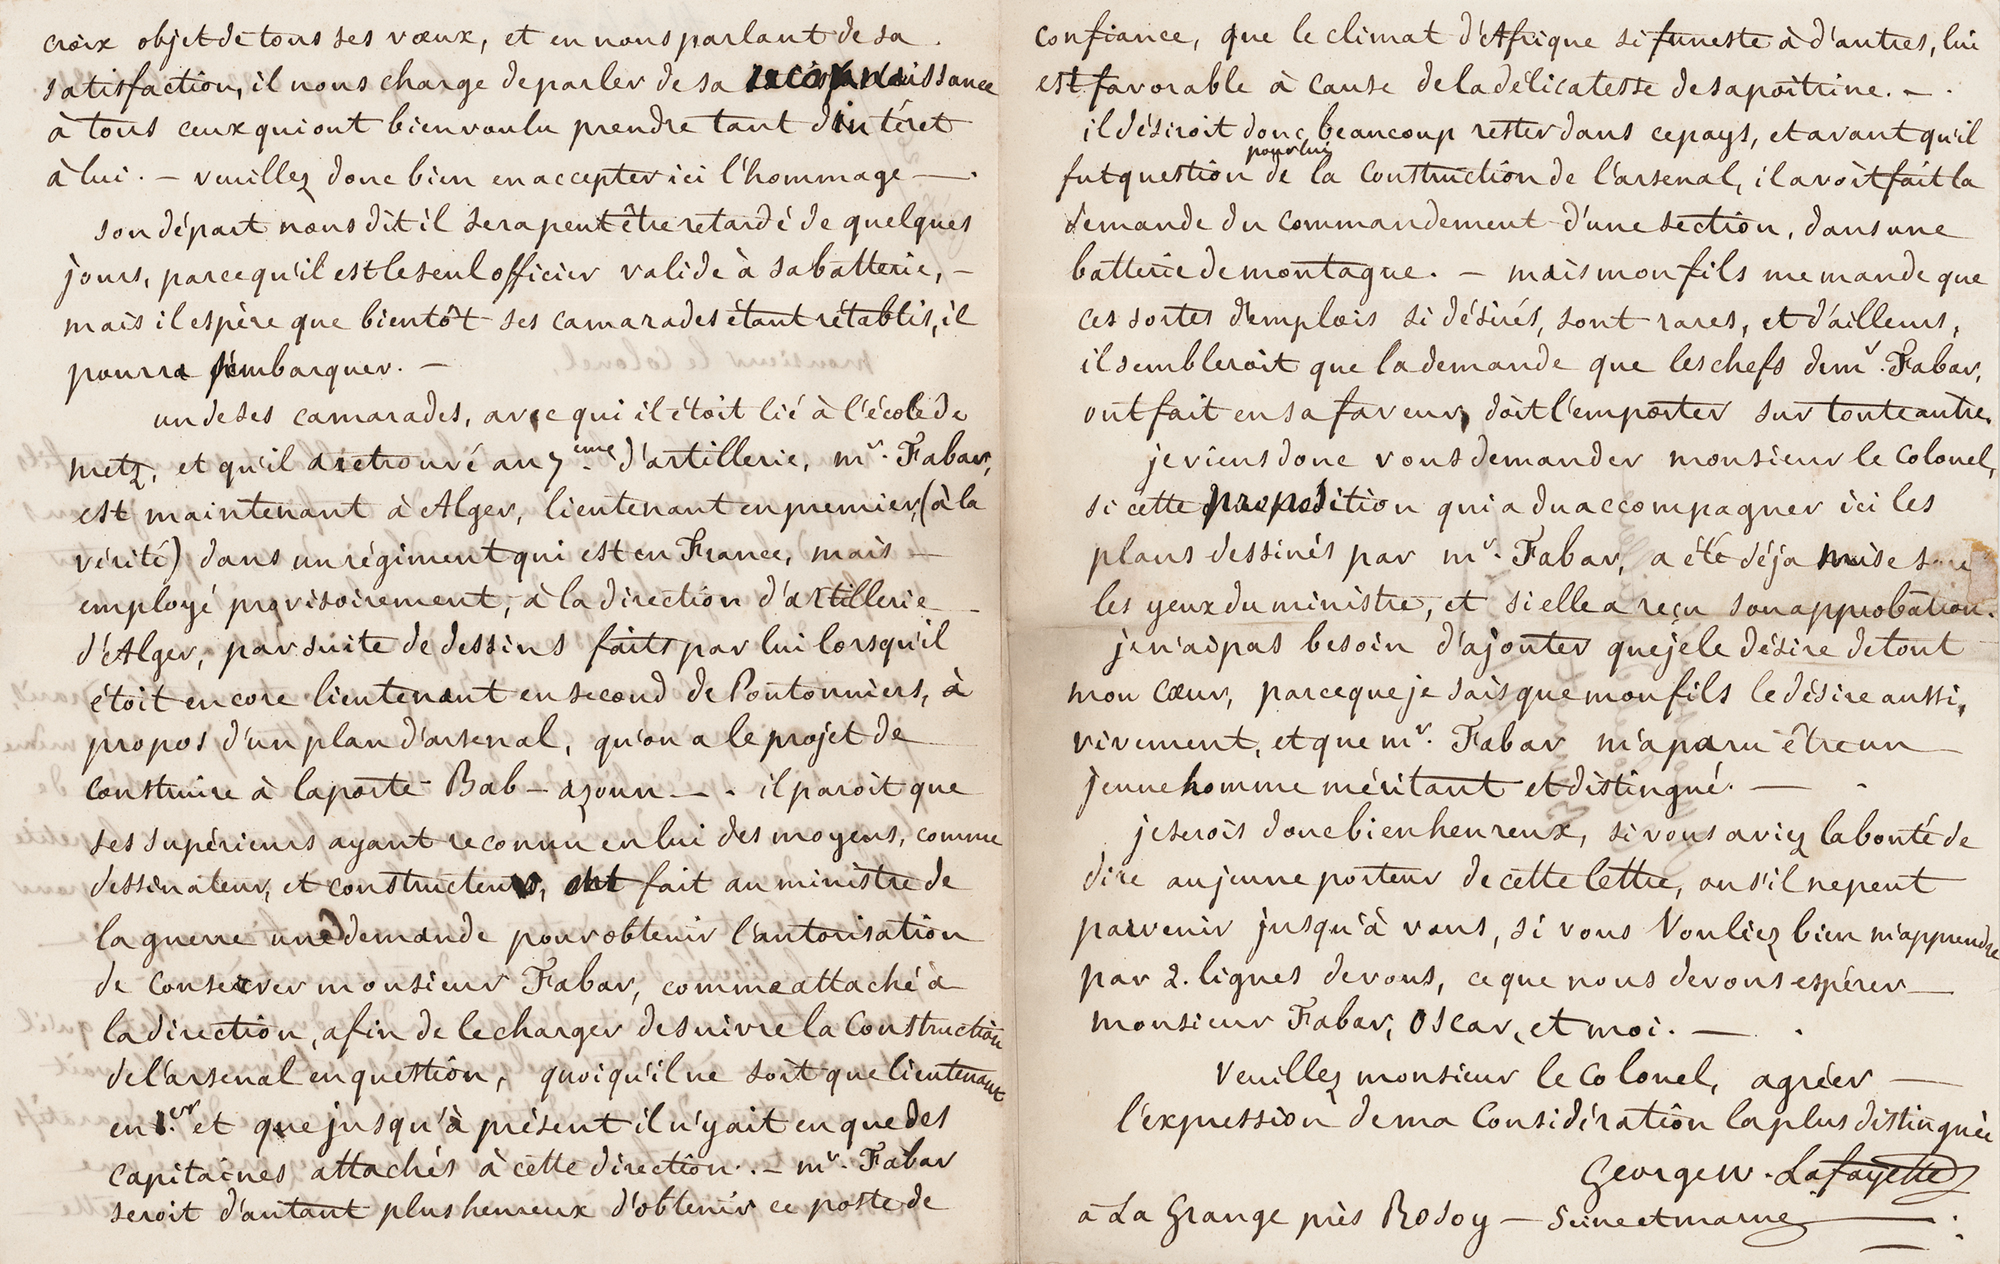 croix objet de tous ses vœux, et en nous parlant de sa
satisfaction, il nous charge de parler de sa reconnaissance
à tous ceux qui ont bien voulu prendre tant d'intéret
à lui. — veuillez donc bien en accepter ici l'hommage —.
son départ nous dit il sera peut être retardé de quelques
jours, parcequ'il est le seul officier valide à sa batterie, —
mais il espère que bientôt ses camarades étant rétablis, il
pourra s'embarquer. —
un de ses camarades, avec qui il étoit lié à l'école de
metz, et qu'il a retrouvé au 7ème. d'artillerie, mr. Fabar,
est maintenant à Alger, lieutenant en premier, (à la
vérité) dans un régiment qui est en France, mais —
employé provisoirement, à la direction d'artillerie —
d'Alger, par suite de dessins faits par lui lorsqu'il
étoit encore lieutenant en second de Pontonniers, à
propos d'un plan d'arsenal, qu'on a le projet de
construire à la porte Bab-azoun —. il paroit que
ses supérieurs ayant reconnu en lui des moyens, comme
dessinateur, et constructeur, ont fait au ministre de
la guerre une demande pour obtenir l'autorisation
de conserver monsieur Fabar, comme attaché à
la direction, afin de le charger de suivre la Construction
de l'arsenal en question, quoiqu'il ne soit que lieutenant
en 1.er et que jusqu'à présent il n'y ait eu que des
capitaines attachés à cette direction. — mr. Fabar
seroit d'autant plus heureux d'obtenir ce poste de
confiance, que le climat d'Afrique si funeste à d'autres, lui
est favorable à cause de la délicatesse de sa poitrine. —.
il désiroit donc beaucoup rester dans ce pays, et avant qu'il
pour lui
fut question de la Construction de l'arsenal, il avoit fait la
demande du commandement d'une section, dans une
batterie de montagne. — mais mon fils me mande que
ces sortes d'emplois si désirés, sont rares, et d'ailleurs,
il sembleroit que la demande que les chefs de mr. Fabar,
ont fait en sa faveur, doit l'emporter sur toute autre.
je viens donc vous demander monsieur le Colonel,
si cette proposition qui a du accompagner ici les
plans dessinés par mr. Fabar, a été déja mise sous
les yeux du ministre, et si elle a reçu son approbation.
je n'ai pas besoin d'ajouter que je le désire de tout
mon cœur, parceque je sais que mon fils le désire aussi,
vivement, et que mr. Fabar m'a paru être un
jeune homme méritant et distingué. —
je serois donc bien heureux, si vous aviez la bonté de
dire au jeune porteur de cette lettre, ou s'il ne peut
parvenir jusqu'à vous, si vous Vouliez bien m'apprendre
par 2. lignes de vous, ce que nous devons espérer —
monsieur Fabar, Oscar, et moi. —.
Veuillez monsieur le Colonel, agréer —
l'expression de ma Considération la plus distinguée
George W. Lafayette
à La Grange près Rosoy — Seine et marne